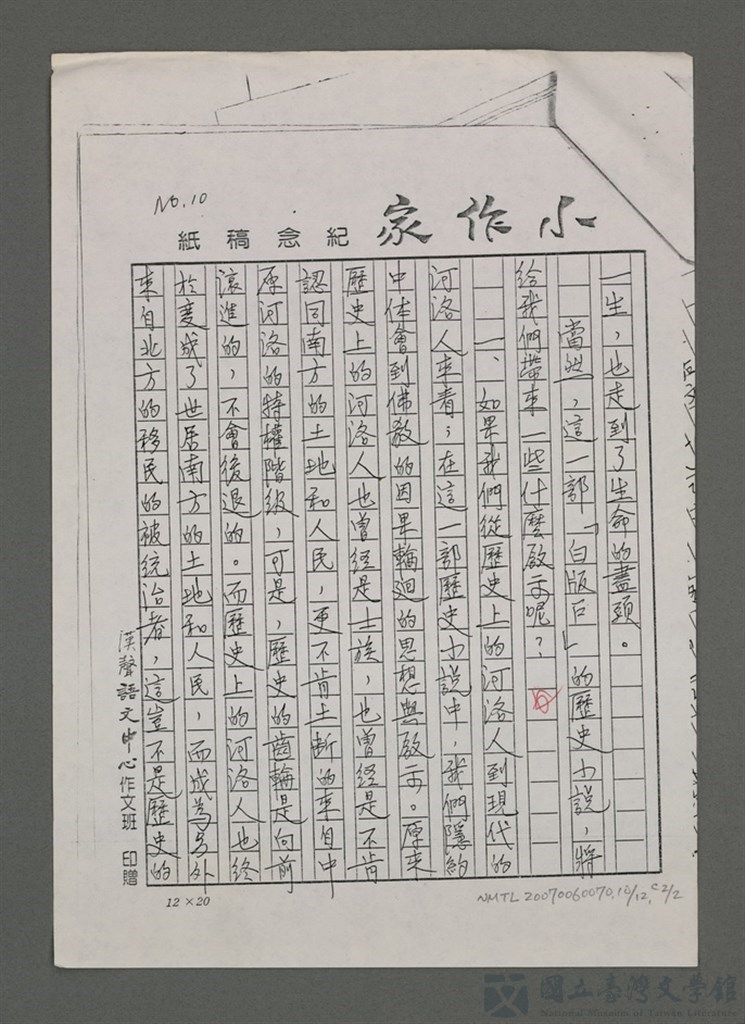 NO.10
小作家
紀念稿紙
一生，也走到了生命的盡頭。
當然，這一部「白版戶」的歷史小說，將
給我們帶來一些什麼啟示呢？
一、如果我們從歷史上的河洛人到現代的
河洛人來看；在這一部歷史小說中，我們隱約
中体會到佛教的因果輪廻的思想與啟示。原來
歷史上的河洛人也曾經是士族，也曾經是不肯
認同南方的土地和人民，更不肯土斷的來自中
原河洛的特權階級，可是，歷史的齒輪是向前
滾進的，不會後退的。而歷史上的河洛人也終
於變成了世居南方的土地和人民，而成為另外
來自北方的移民的被統治者，這豈不是歷史的
漢聲語文中心作文班 印贈
12×20
NMTL20070060070.10/12, C2/2
國立臺灣文學館
National Museum of Taiwan Literature